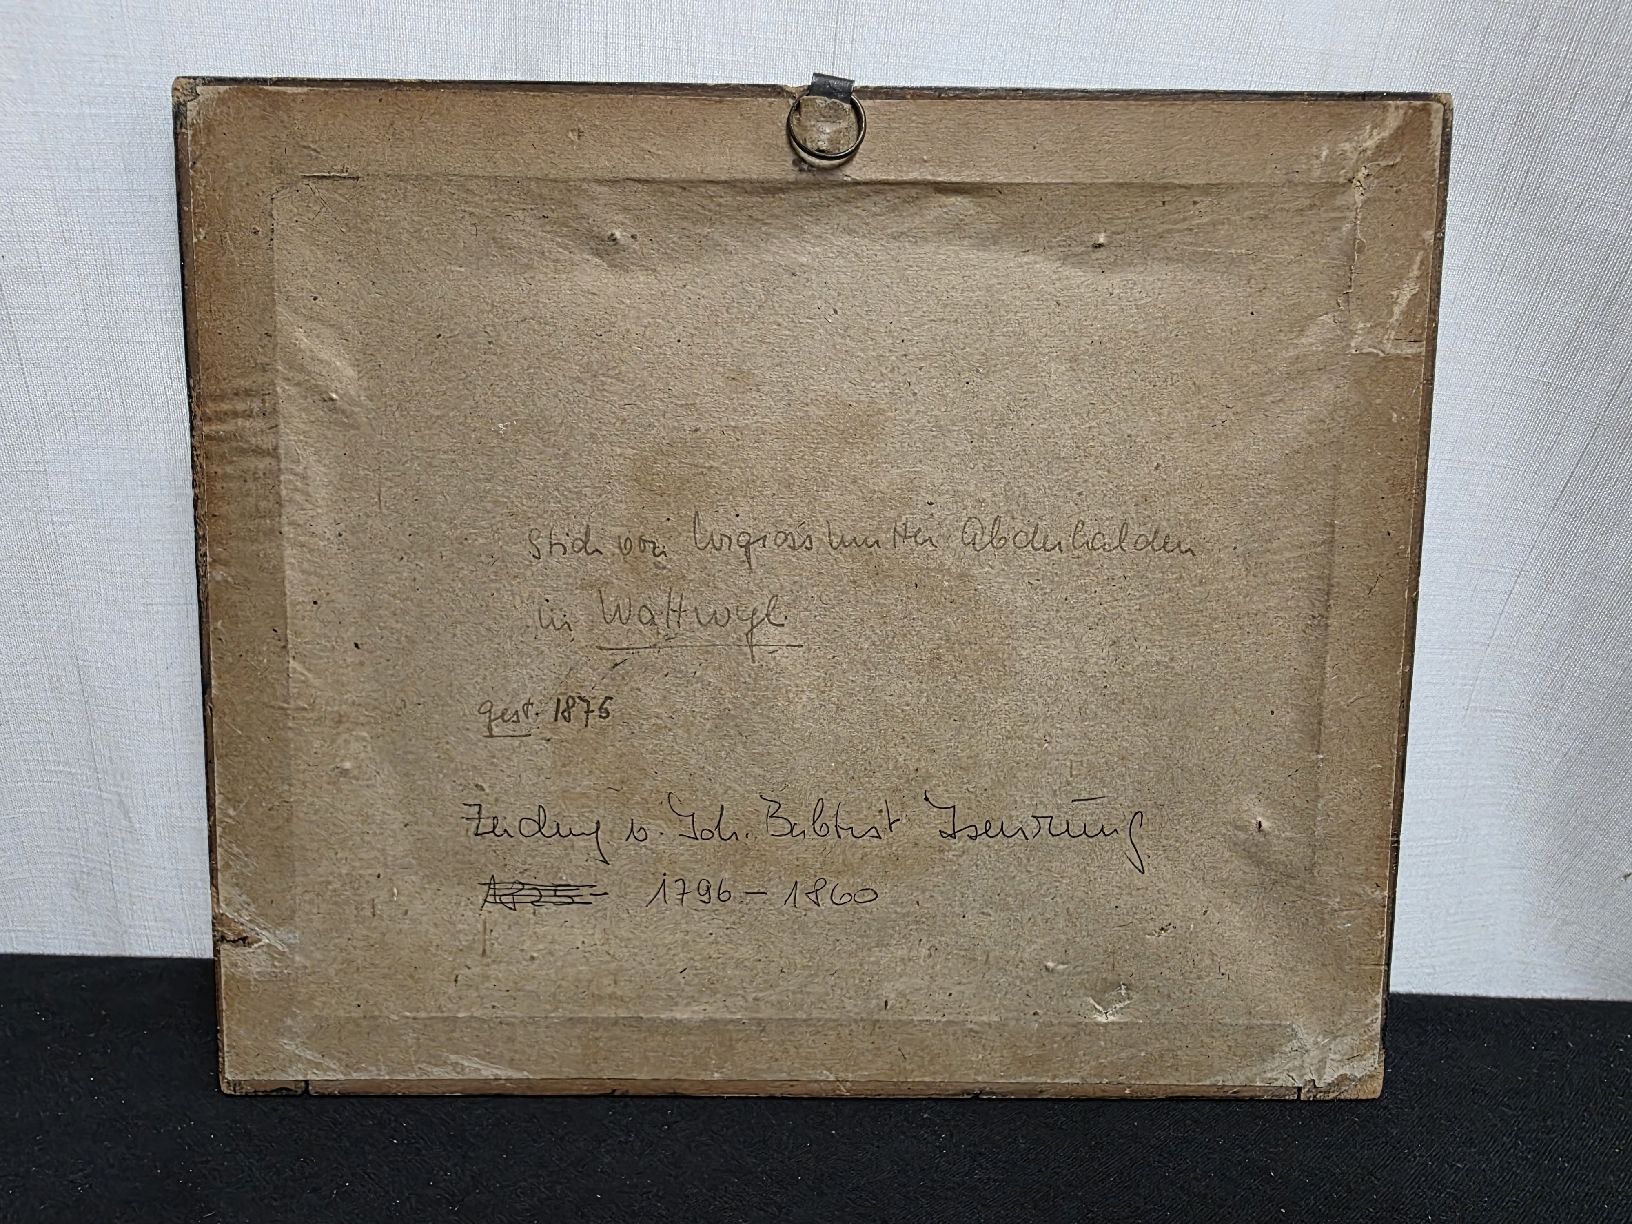 Stich von Urgrossmutter Abderhalden
in Wattwyl
gest. 1876
Zeichung v. Joh. Babtist Isenrūng
1796 – 1860